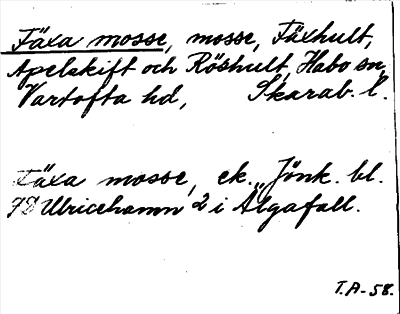 Fäxa mosse, mosse, Fäxhult,
Apelskift och Röshult, Habo sn,
Vartofta hd, Skarab. l.
Fäxa mosse, ek. „Jönk. bl.
7D Ulricehamn 2 i Älgafall.
T.A-58.